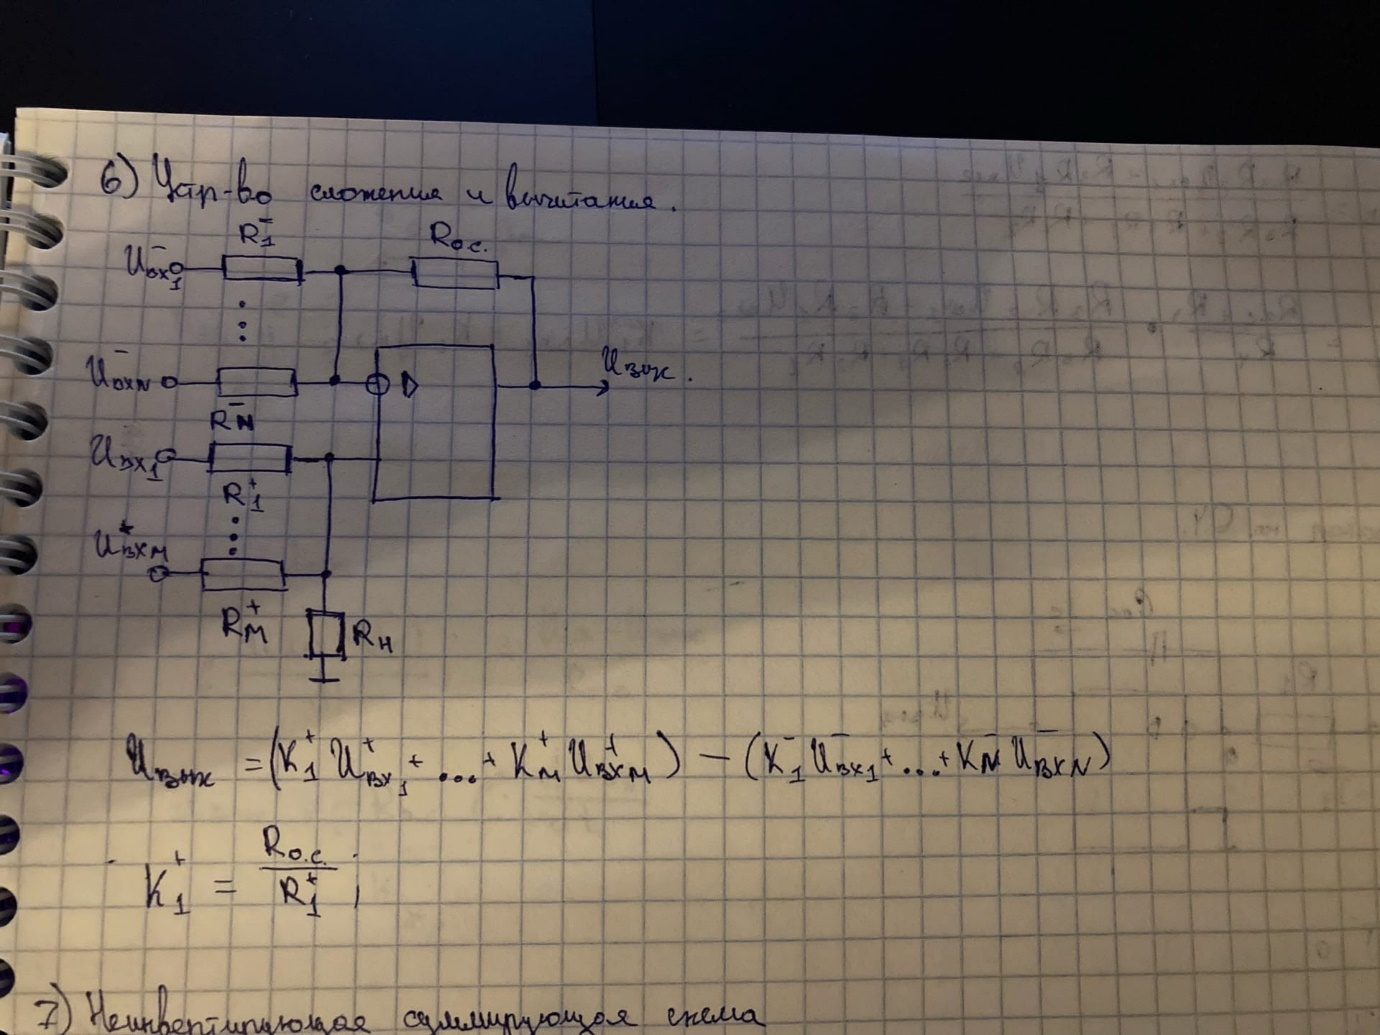 6) Устр-во сложения и вычитания.
R₁⁻
Rо.с.
U⁻вх₁
U⁻вхN
Uвых.
R⁻N
Uвх₁
R₁⁺
U⁺вхM
R⁺M
Rн
Uвых = (K₁⁺ U⁺вх₁ + ... + K⁺M U⁺вхM) − (K₁⁻ U⁻вх₁ + ... + K⁻N U⁻вхN)
K₁⁺ = Rо.с. / R₁⁺ ;
7) Неинвертирующая суммирующая схема